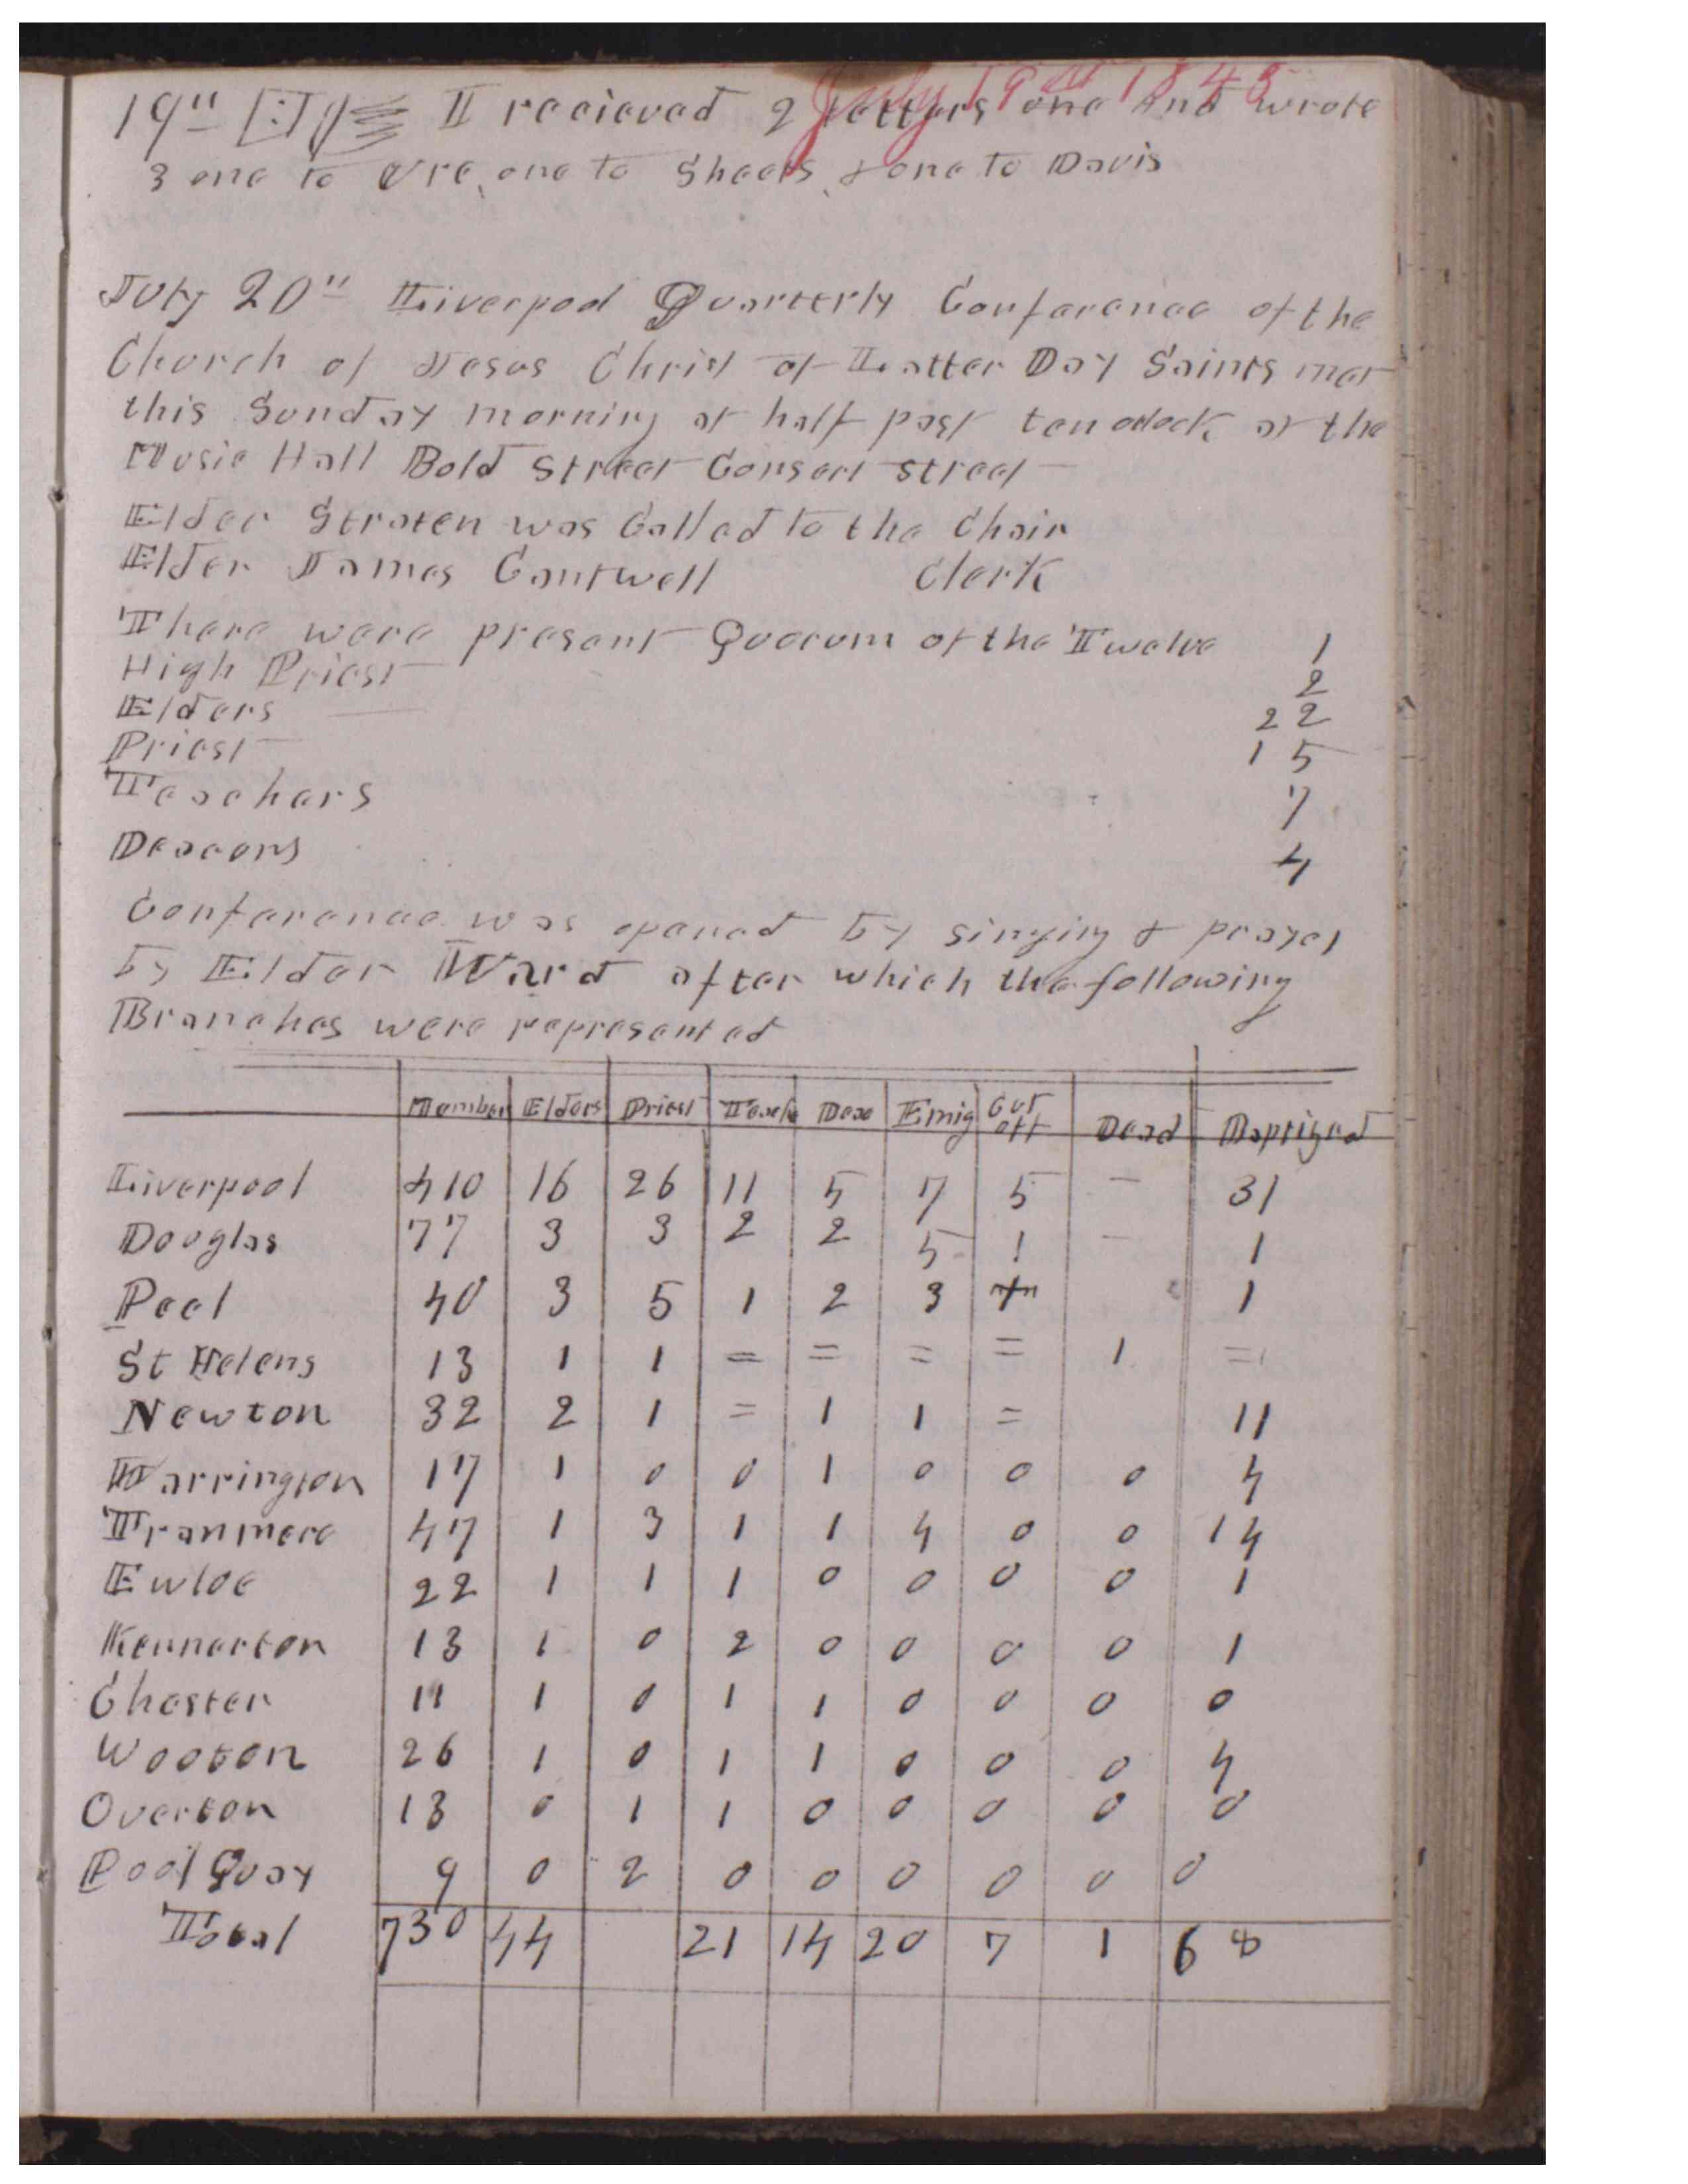 July 19th 1845
19th I recieved 2 letters one And wrote
3 one to Ure, one to Sheets, & one to Davis
July 20th Liverpool Quarterly Conference of the
Church of Jesus Christ of Latter Day Saints met
this Sunday morning at half past ten oclock, at the
Music Hall Bold Street Consert street
Elder Straten was Called to the Chair
Elder James Cantwell Clerk
There were present Quorum of the Twelve 1
High Priest 2
Elders 22
Priest 15
Teachers 7
Deacons 4
Conference was opened by singing & prayer
by Elder Ward after which the following
Branches were represented
Member Elders Priest Teach Deac Emig Cut off Dead Baptized
Liverpool 410 16 26 11 5 7 5 - 31
Douglas 77 3 3 2 2 5 1 - 1
Peel 40 3 5 1 2 3 1
St Helens 13 1 1 = = = = 1 =
Newton 32 2 1 = 1 1 = 11
Warrington 17 1 0 0 1 0 0 0 4
Tranmere 47 1 3 1 1 4 0 0 14
Ewloe 22 1 1 1 0 0 0 0 1
Kennerton 13 1 0 2 0 0 0 0 1
Chester 11 1 0 1 1 0 0 0 0
Wooton 26 1 0 1 1 0 0 0 4
Overton 13 0 1 1 0 0 0 0 0
Pool Quay 9 0 2 0 0 0 0 0 0
Total 730 44 21 14 20 7 1 68